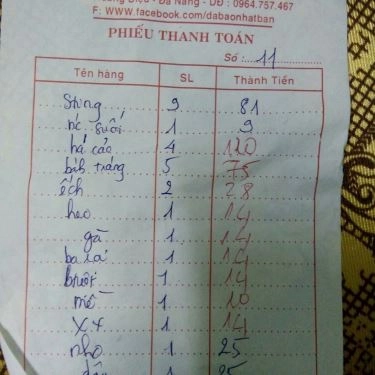 Diệu - Đà Nẵng - DĐ : 0964.757.467
F: www.facebook.com/dabaonhatban
PHIẾU THANH TOÁN
Số : 11
Tên hàng SL Thành Tiền
Sting 9 81
nc suối 1 9
há cảo 4 120
bánh tráng 5 75
ếch 2 28
heo 1 14
gà 1 14
ba rọi 1 14
1 14
1 10
XX 1 14
nho 1 25
1 25